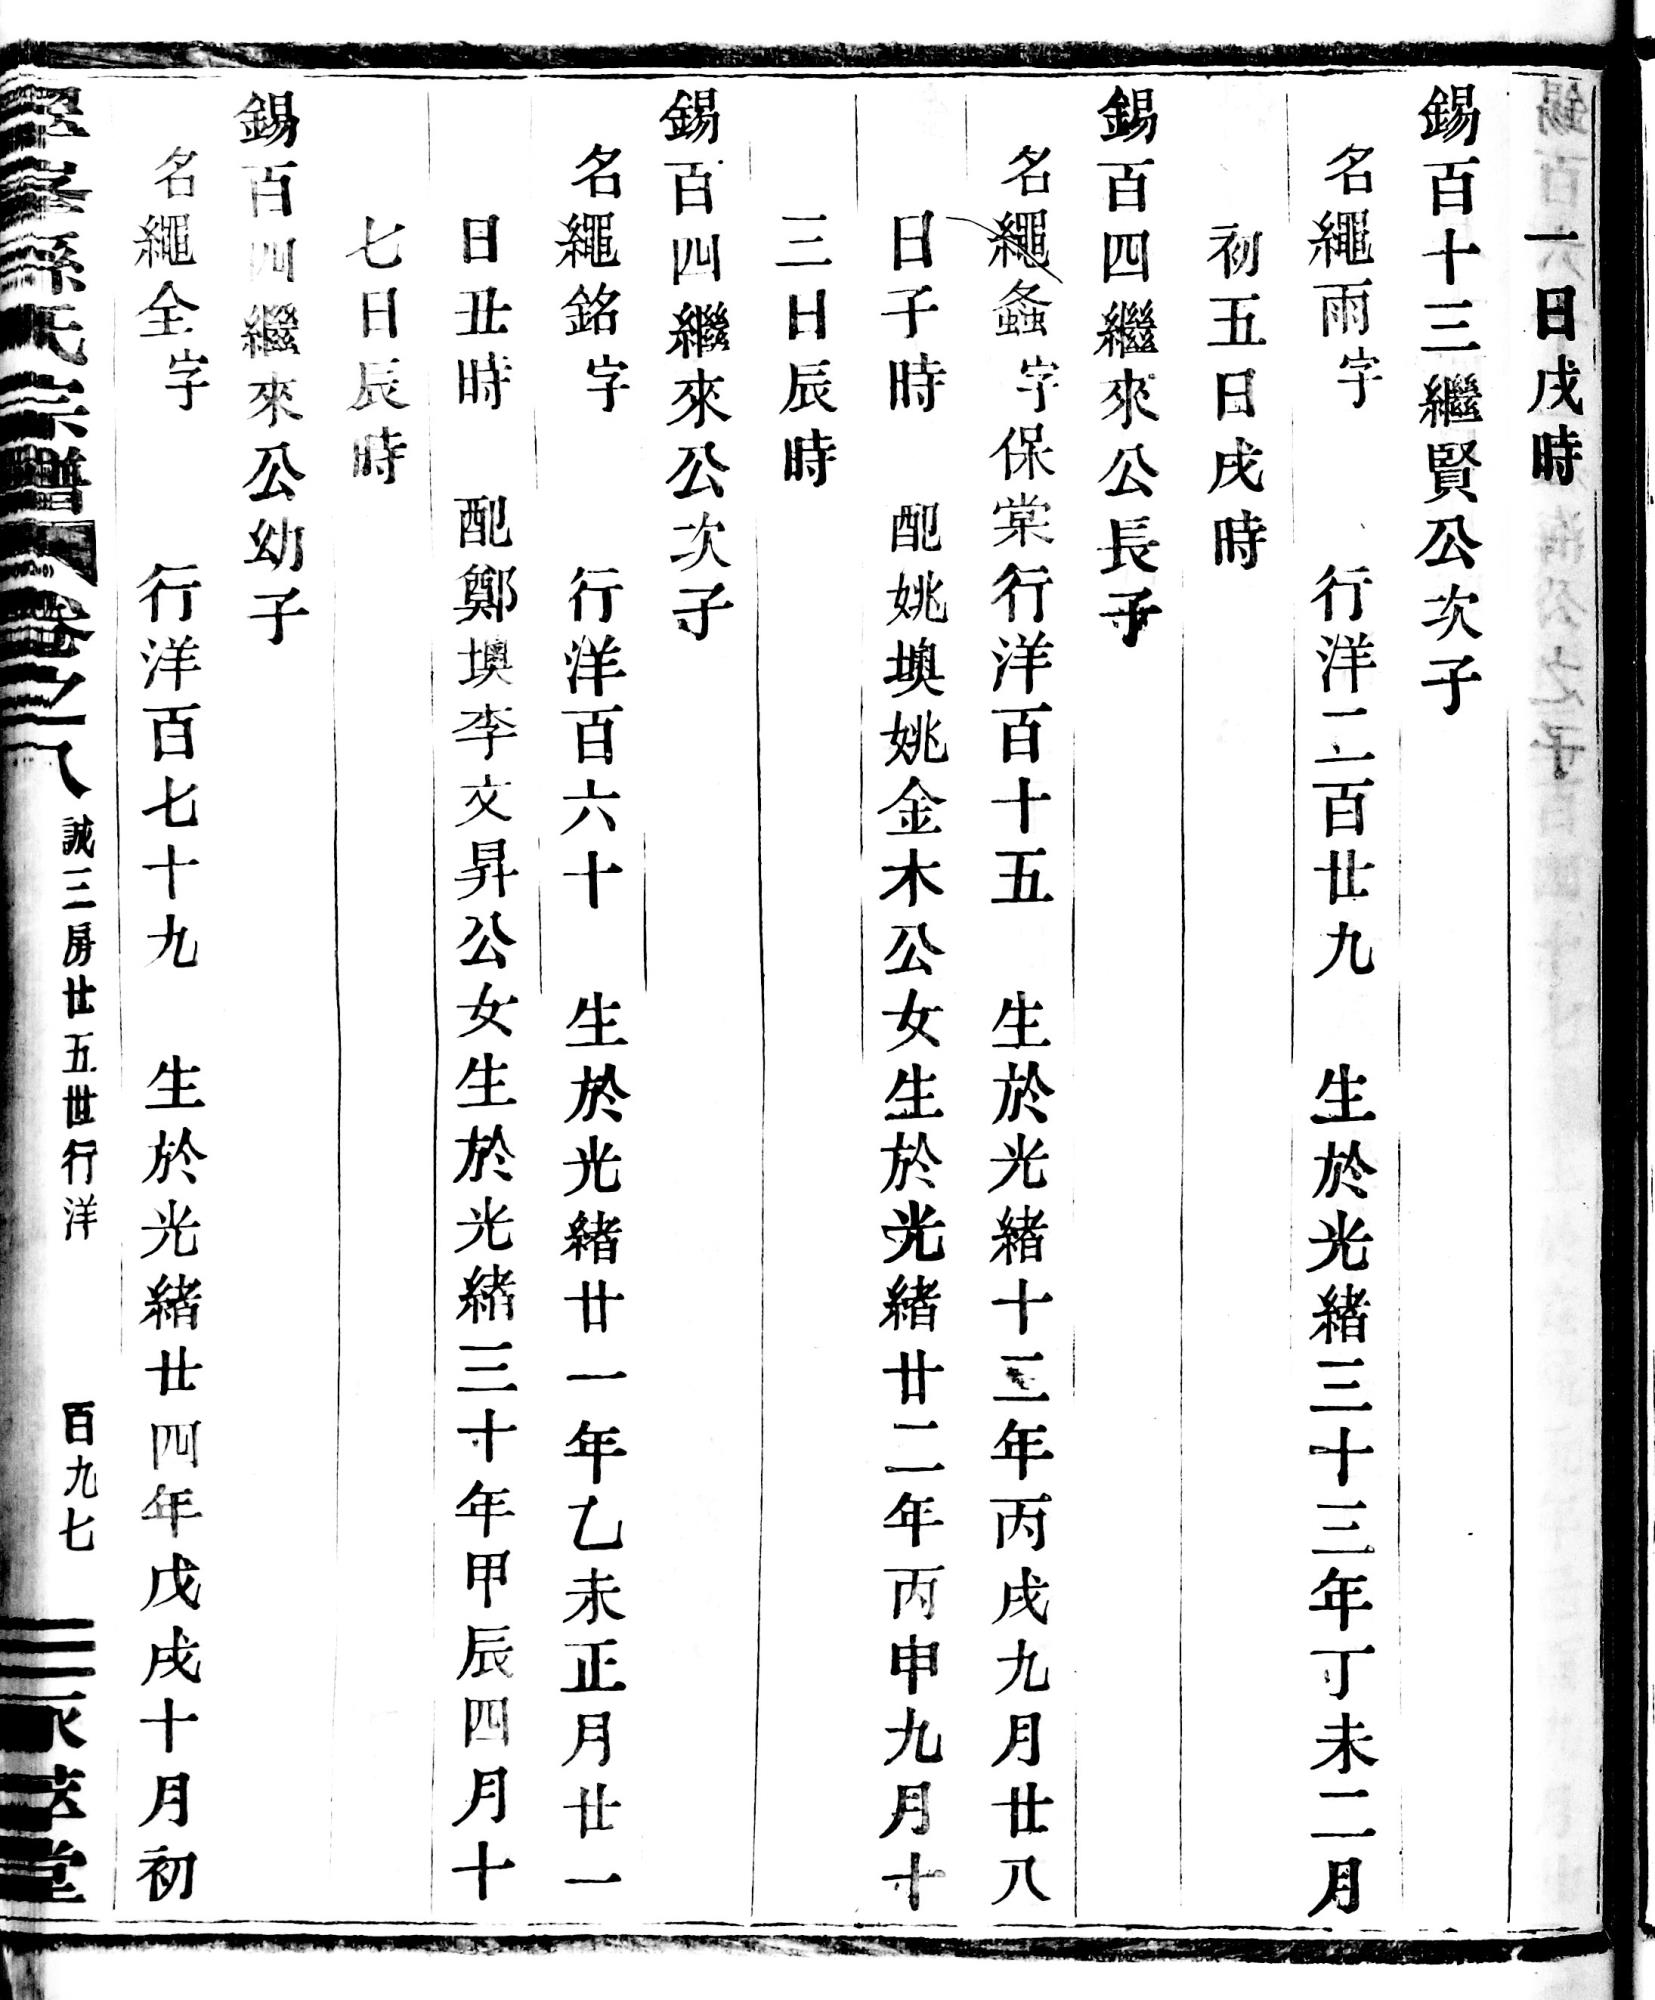 一日戌時
錫百十三繼賢公次子
名繩雨字　行洋二百廿九　生於光緒三十三年丁未二月
初五日戌時
錫百四繼來公長子
名繩螽字保棠行洋百十五　生於光緒十二年丙戌九月廿八
日子時　配姚墺姚金木公女生於光緒廿二年丙申九月十
三日辰時
錫百四繼來公次子
名繩銘字　行洋百六十　生於光緒廿一年乙未正月廿一
日丑時　配鄭墺李文昇公女生於光緒三十年甲辰四月十
七日辰時
錫百四繼來公幼子
名繩全字　行洋百七十九　生於光緒廿四年戊戌十月初
孫氏宗譜　卷之八　誠三房廿五世行洋　百九七　堂